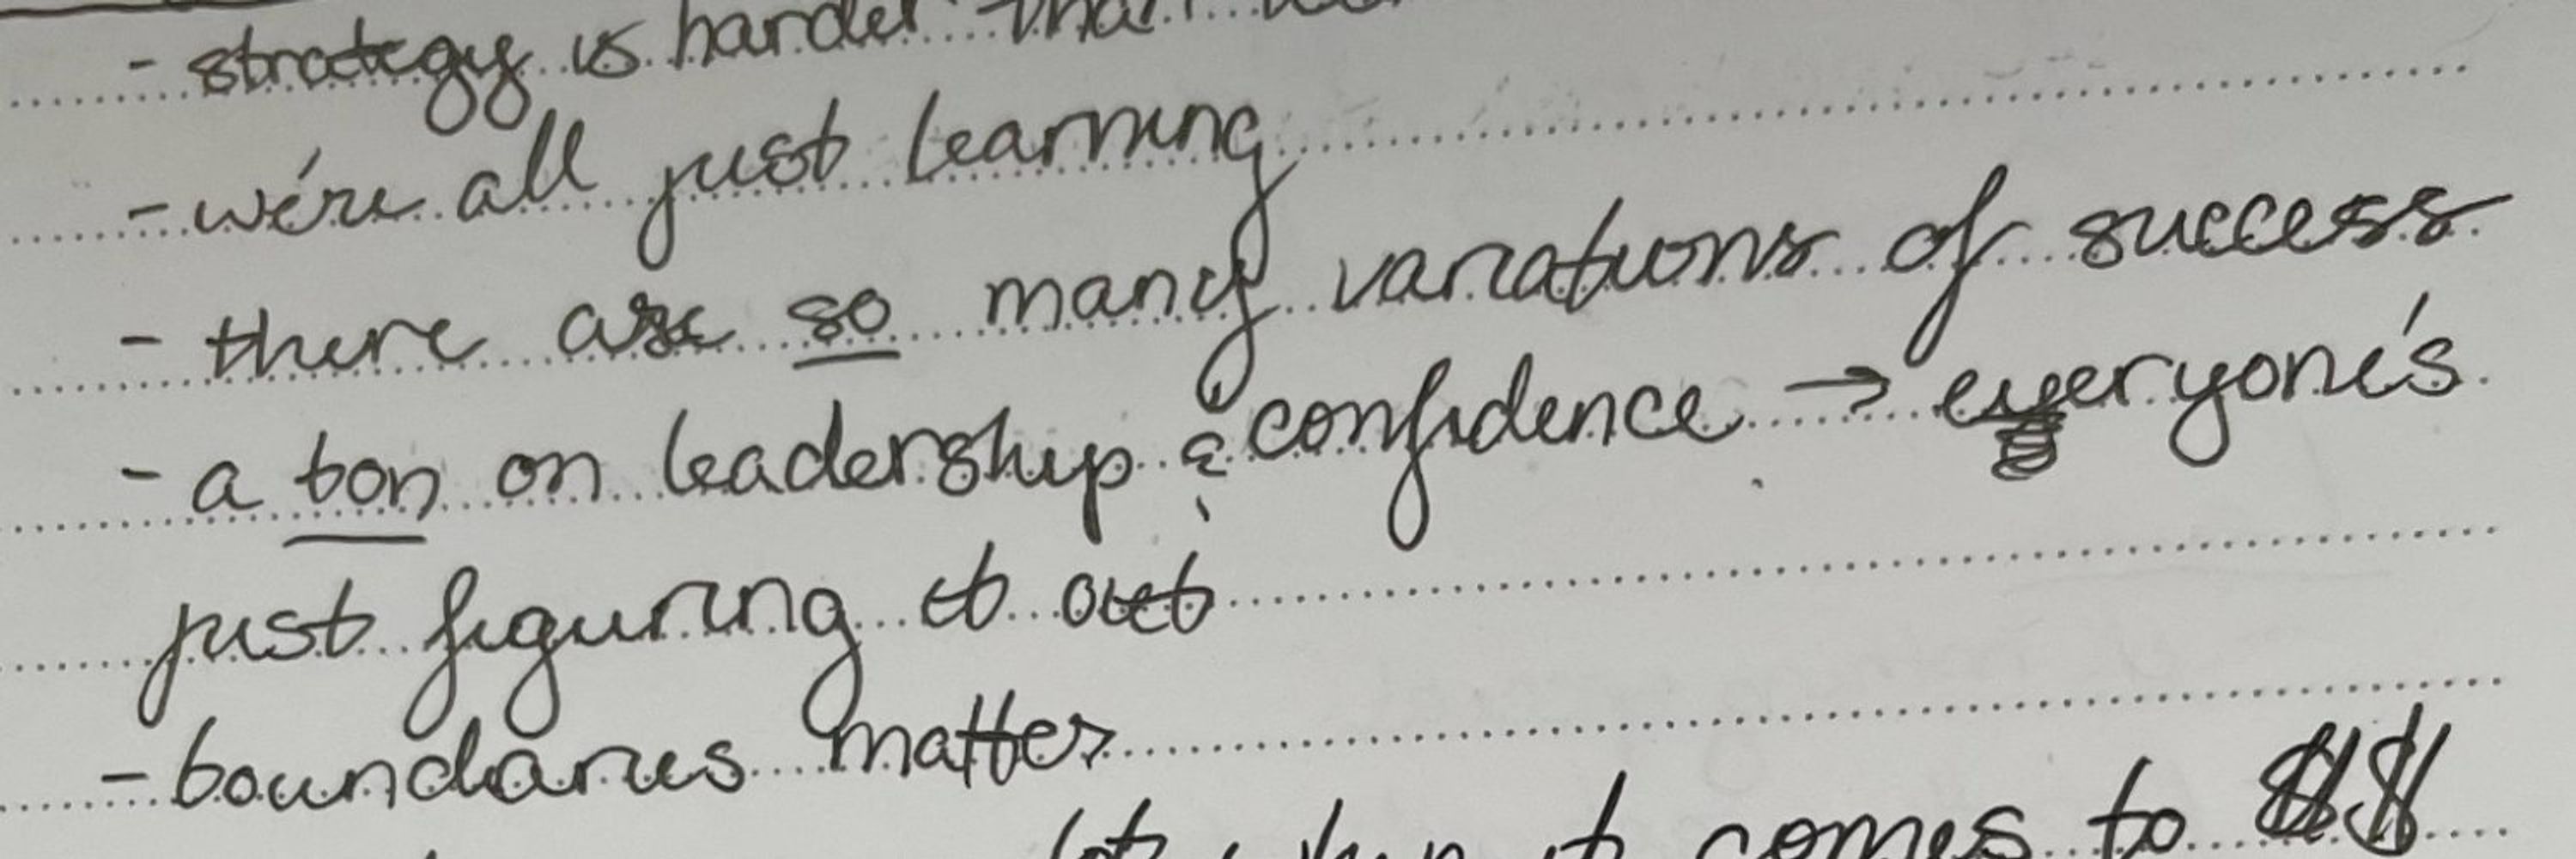 - strategy is harder than
- we're all just learning
- there are so many variations of success
- a ton on leadership & confidence → everyone's
just figuring it out
- boundaries matter
when it comes to $$